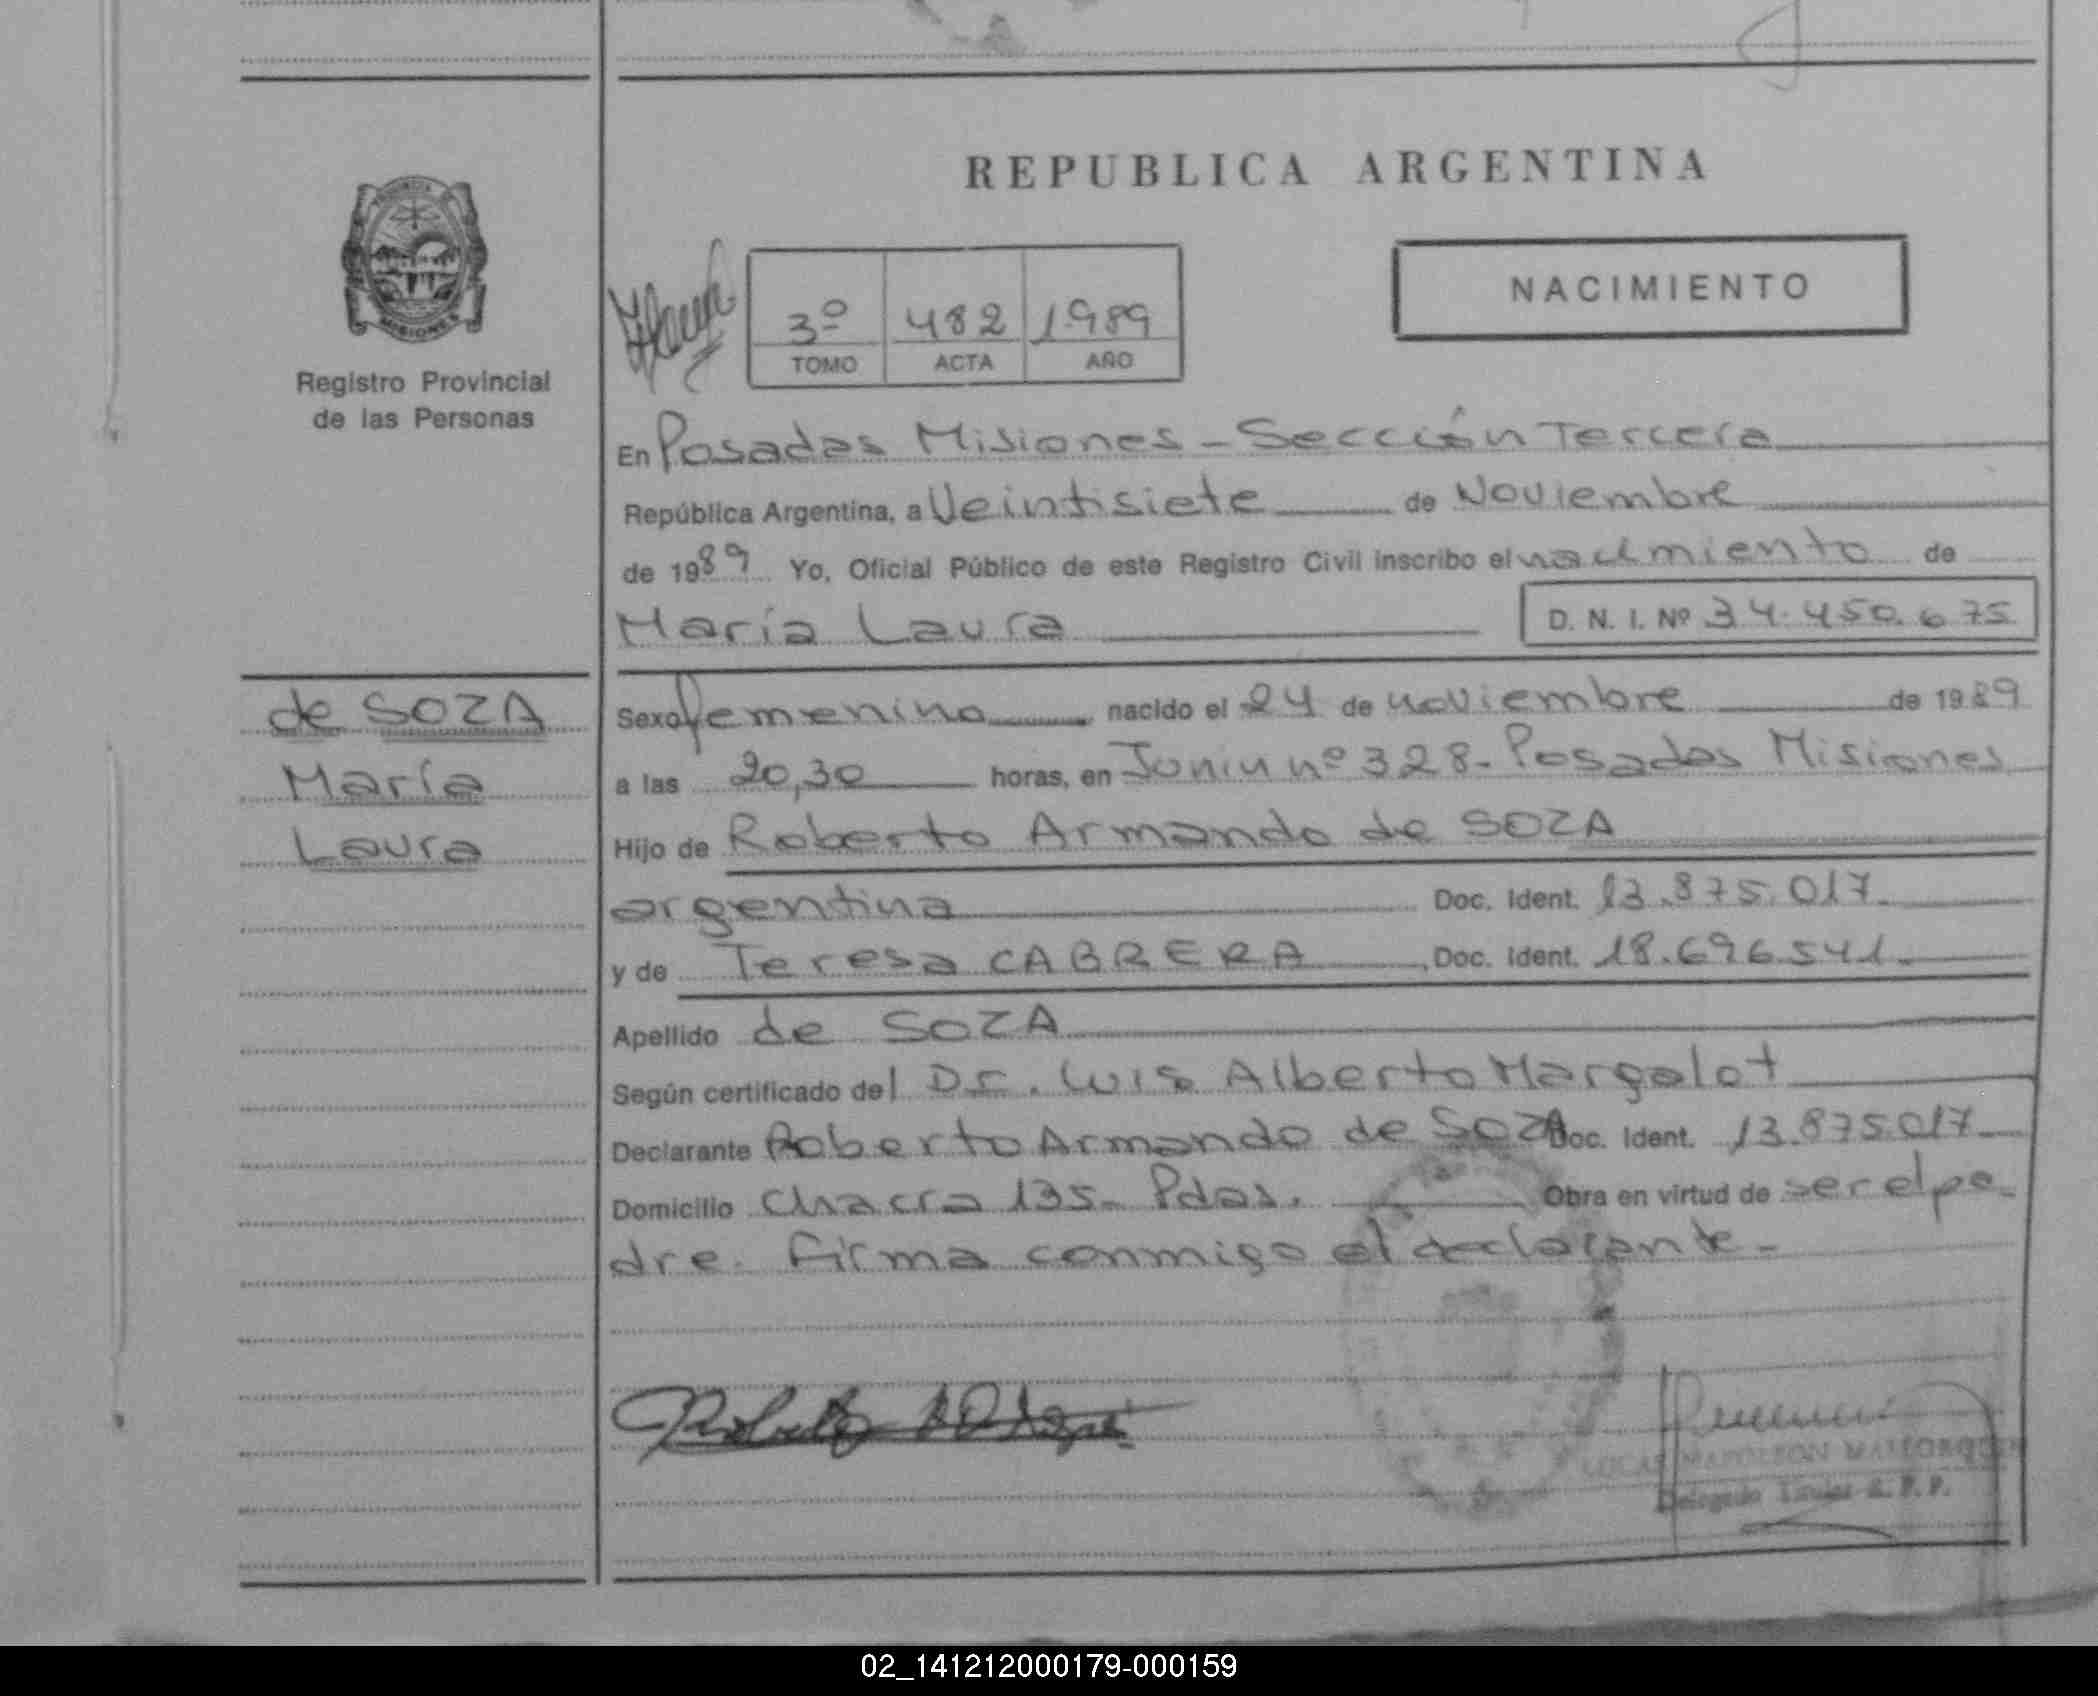 REPUBLICA ARGENTINA
NACIMIENTO
MISIONES
Registro Provincial
de las Personas
3º 482 1989
TOMO ACTA AÑO
En Posadas Misiones - Sección Tercera
República Argentina, a Veintisiete de Noviembre
de 1989 Yo, Oficial Público de este Registro Civil inscribo el nacimiento de
María Laura D. N. I. Nº 34.450.675
de SOZA
María
Laura
Sexo femenino nacido el 24 de noviembre de 1989
a las 20,30 horas, en Junin nº 328- Posadas Misiones
Hijo de Roberto Armando de SOZA
argentina Doc. Ident. 13.875.017.
y de Teresa CABRERA Doc. Ident. 18.696.541.
Apellido de SOZA
Según certificado del Dr. Luis Alberto Margalot
Declarante Roberto Armando de SOZA Doc. Ident. 13.875.017
Domicilio Chacra 135- Pdas. Obra en virtud de ser el pa-
dre. Firma conmigo el declarante-
LUCAS NAPOLEON MALLORQUIN
Delegado Titular R. P. P.
02_141212000179-000159